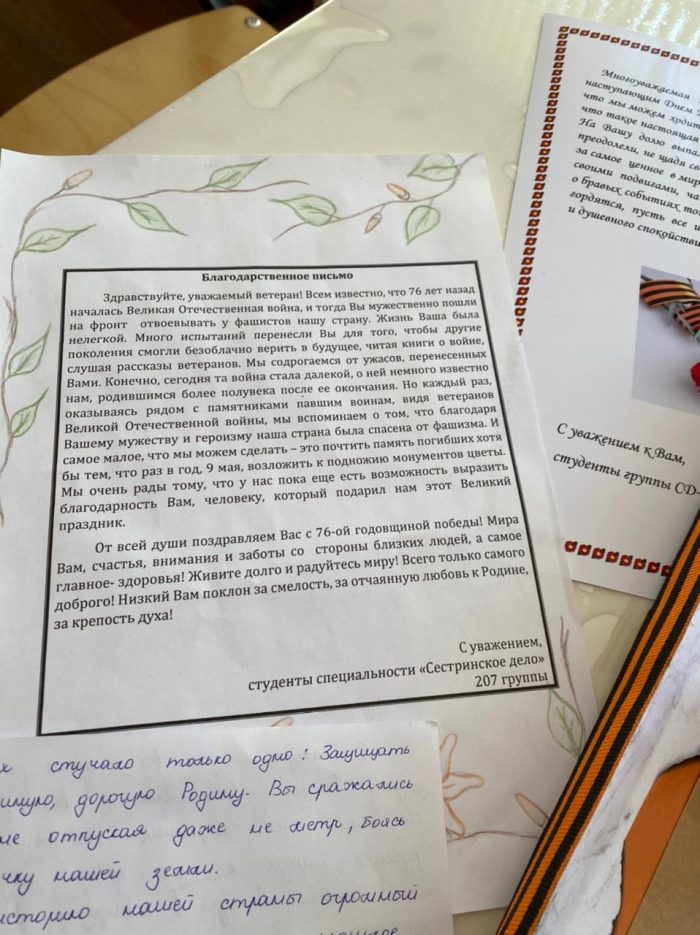 Благодарственное письмо
Здравствуйте, уважаемый ветеран! Всем известно, что 76 лет назад
началась Великая Отечественная война, и тогда Вы мужественно пошли
на фронт отвоевывать у фашистов нашу страну. Жизнь Ваша была
нелегкой. Много испытаний перенесли Вы для того, чтобы другие
поколения смогли безоблачно верить в будущее, читая книги о войне,
слушая рассказы ветеранов. Мы содрогаемся от ужасов, перенесенных
Вами. Конечно, сегодня та война стала далекой, о ней немного известно
нам, родившимся более полувека после ее окончания. Но каждый раз,
оказываясь рядом с памятниками павшим воинам, видя ветеранов
Великой Отечественной войны, мы вспоминаем о том, что благодаря
Вашему мужеству и героизму наша страна была спасена от фашизма. И
самое малое, что мы можем сделать – это почтить память погибших хотя
бы тем, что раз в год, 9 мая, возложить к подножию монументов цветы.
Мы очень рады тому, что у нас пока еще есть возможность выразить
благодарность Вам, человеку, который подарил нам этот Великий
праздник.
От всей души поздравляем Вас с 76-ой годовщиной победы! Мира
Вам, счастья, внимания и заботы со стороны близких людей, а самое
главное- здоровья! Живите долго и радуйтесь миру! Всего только самого
доброго! Низкий Вам поклон за смелость, за отчаянную любовь к Родине,
за крепость духа!
С уважением,
студенты специальности «Сестринское дело»
207 группы
Многоуважаемая
наступающим Днем
что мы можем ходит
что такое настоящая
На Вашу долю выпа
преодолели, не щадя св
за самое ценное в мир
своими подвигами, ча
о бравых событиях то
гордятся, пусть все и
и душевного спокойстви
С уважением к Вам,
студенты группы СД-
стучало только одно: Защищать
дорогую Родину. Вы сражались
не отпуская даже не метр, боясь
чку нашей земли.
историю нашей страны огромный